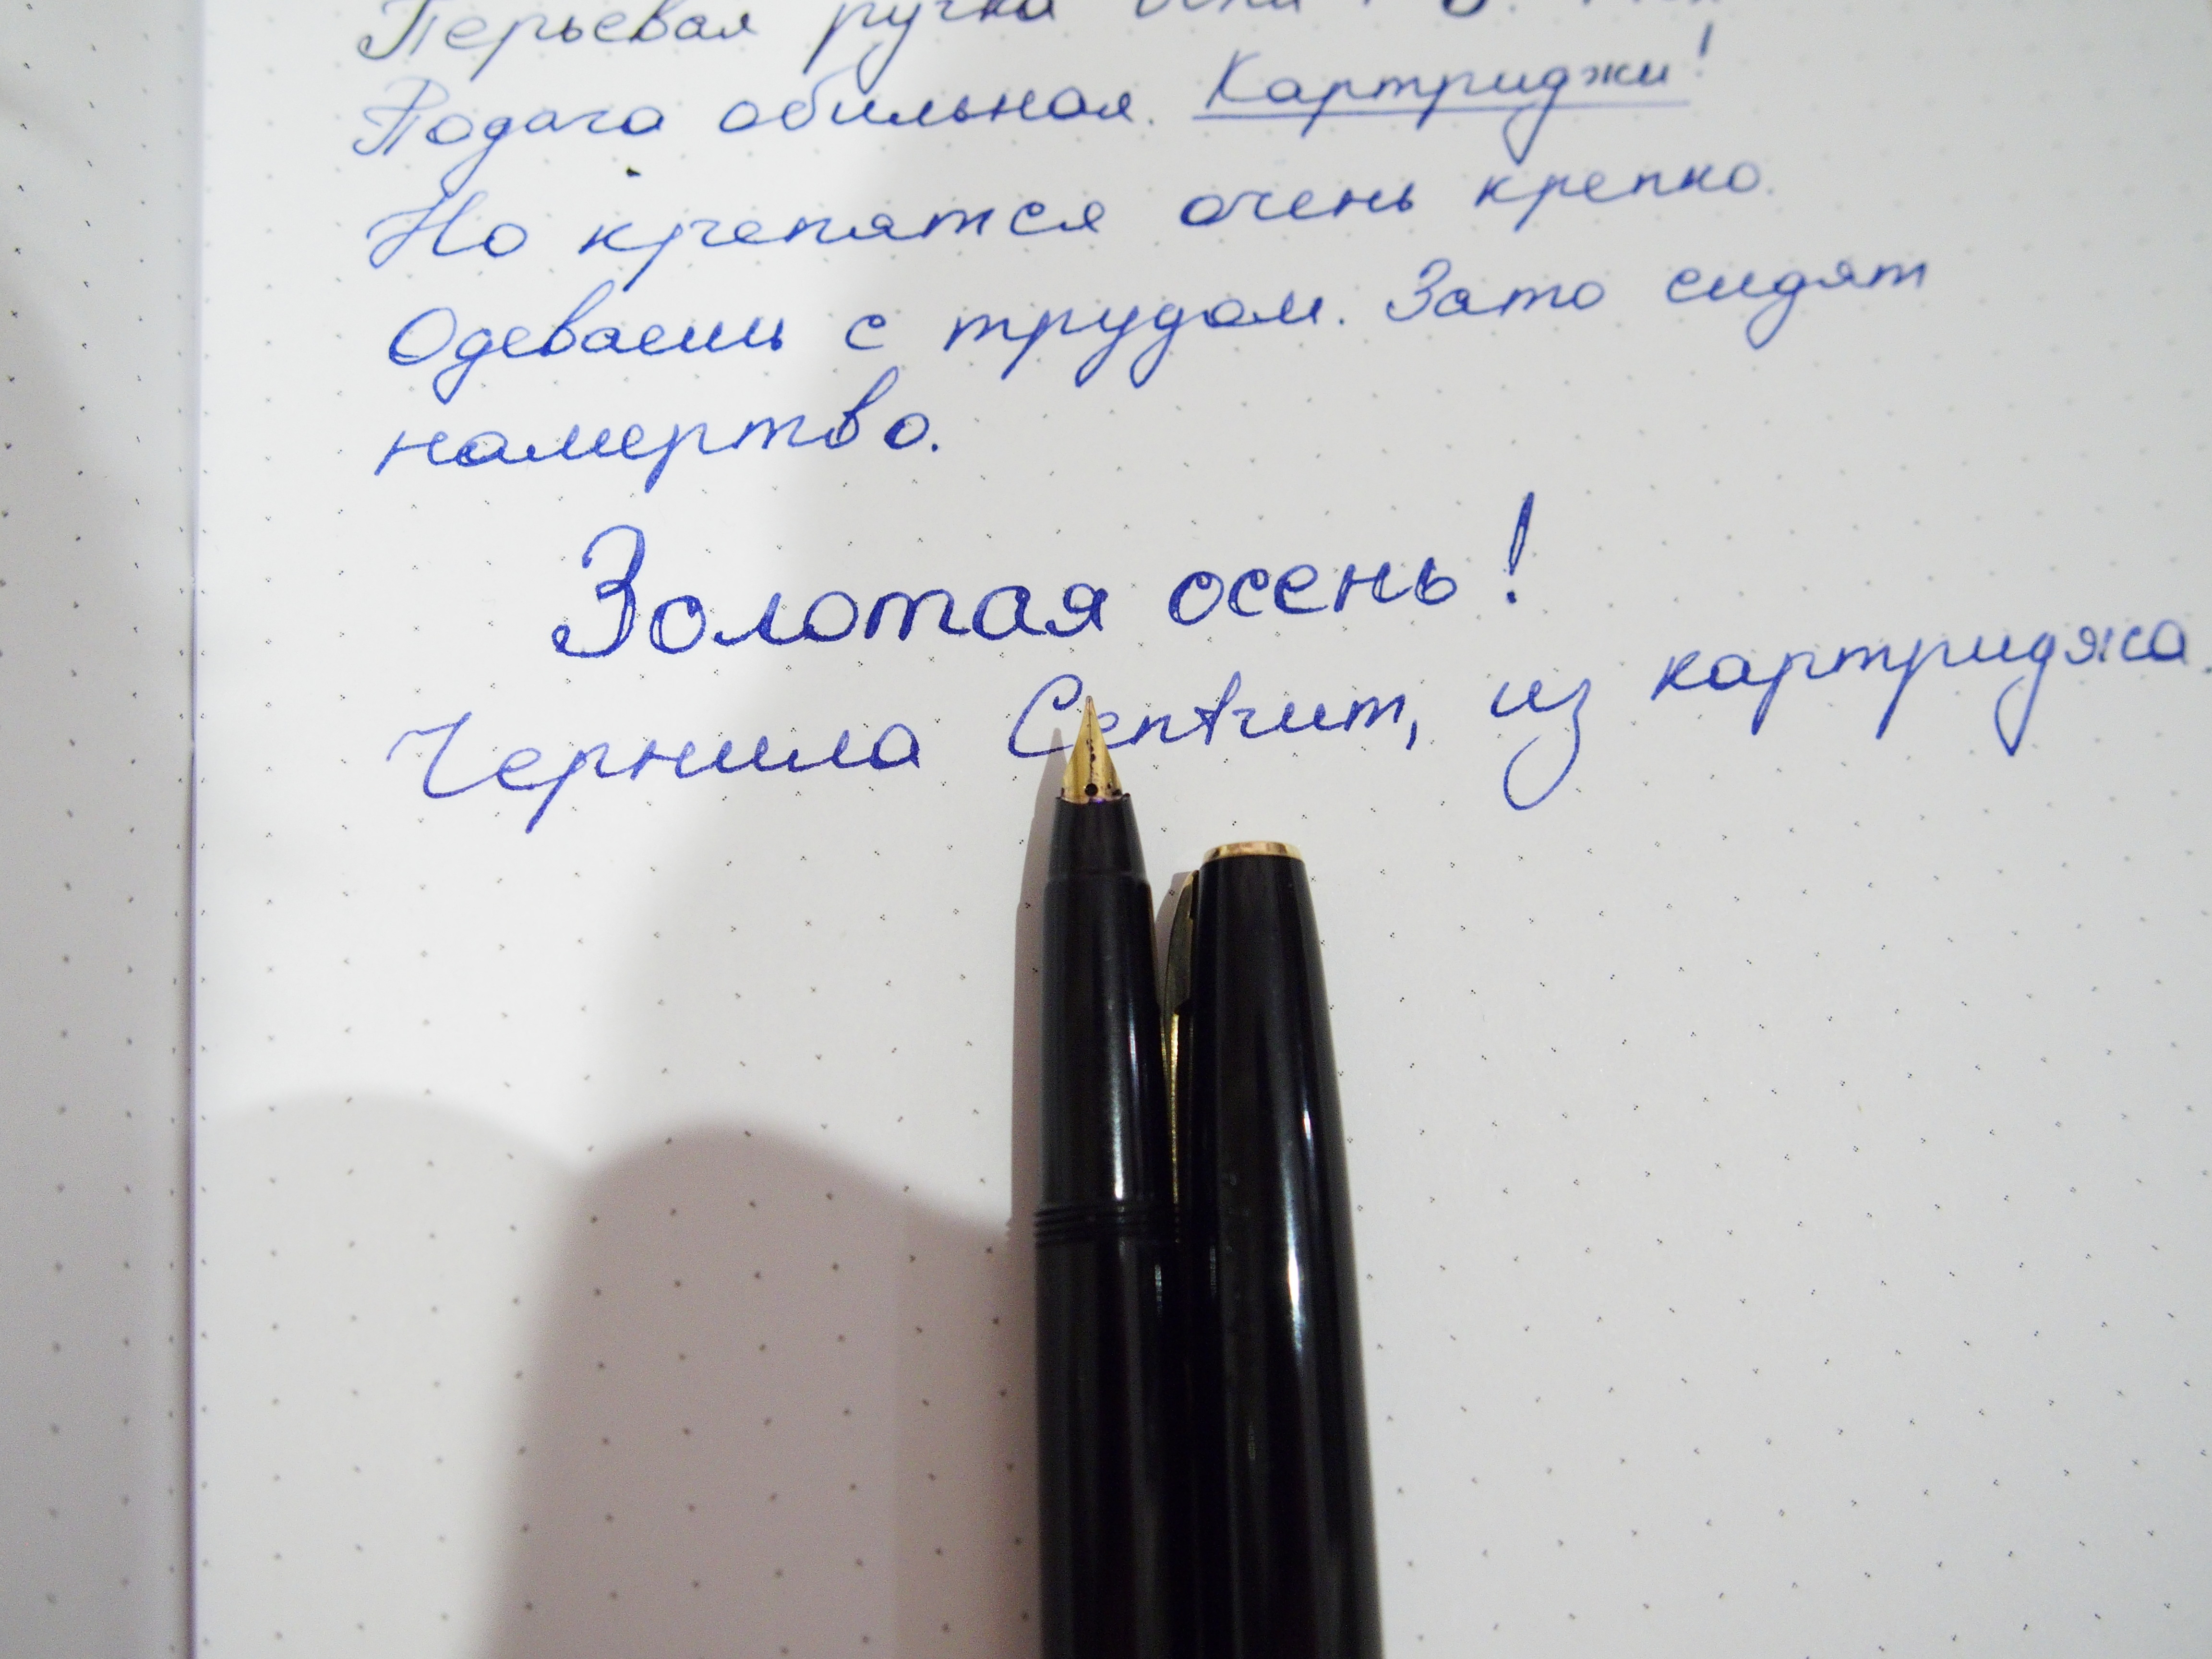 Перьевая ручка
Подача обильная. Картриджи!
Но крепятся очень крепко.
Одеваеши с трудом. Зато сидят
намертво.
Золотая осень!
Чернила Centrum, из картриджа.